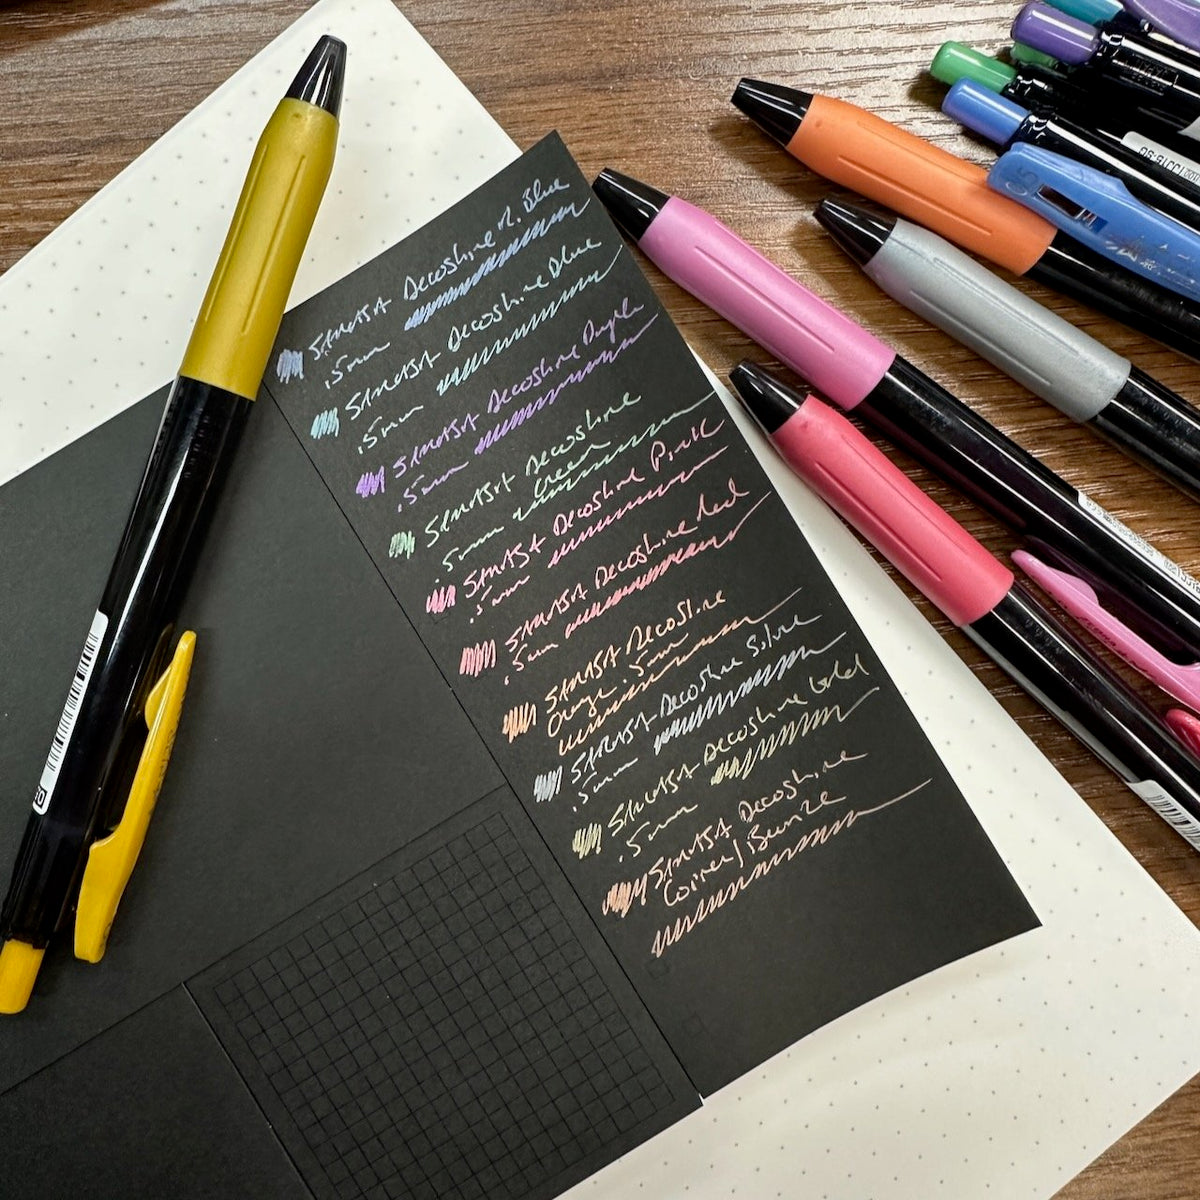 SARASA Decoshine M. Blue
.5mm
SARASA Decoshine Blue
.5mm
SARASA Decoshine Purple
.5mm
SARASA Decoshine
Green
.5mm
SARASA Decoshine Pink
.5mm
SARASA Decoshine Red
.5mm
SARASA Decoshine
Orange .5mm
SARASA Decoshine Silver
.5mm
SARASA Decoshine Gold
.5mm
SARASA Decoshine
Copper/Bronze
0.5